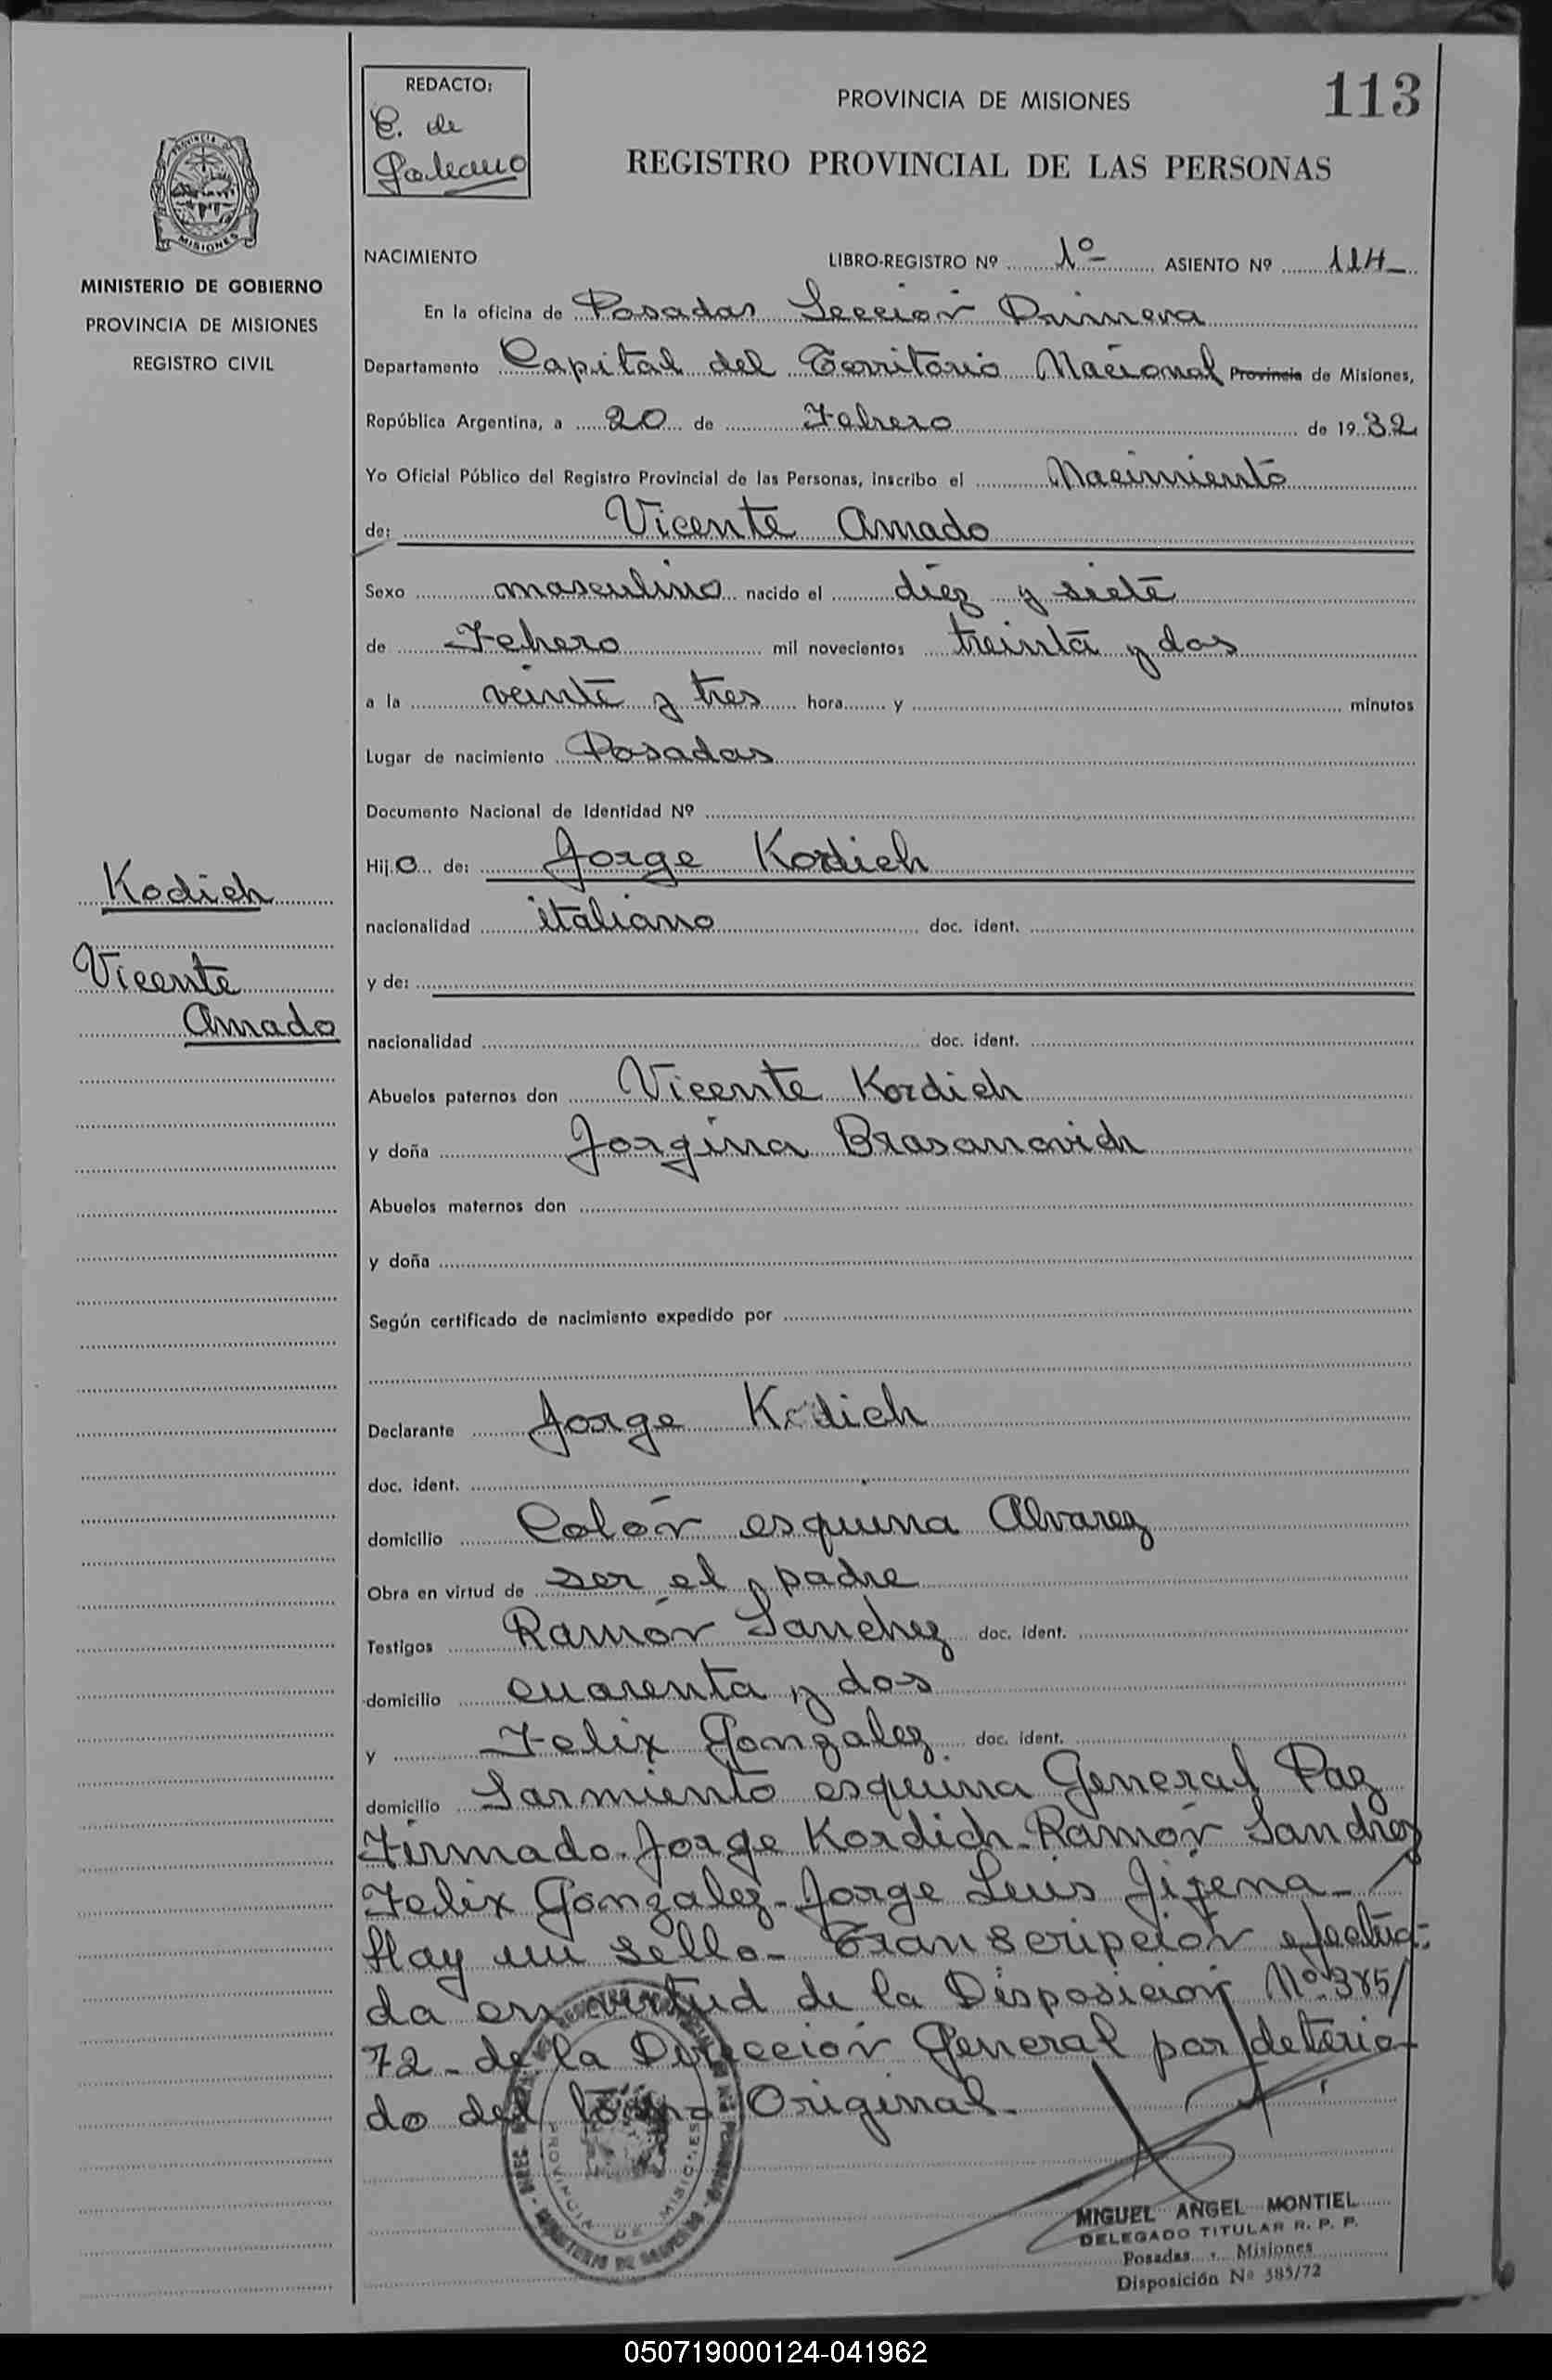 REDACTO:
C. de
Galeano
PROVINCIA DE MISIONES
113
REGISTRO PROVINCIAL DE LAS PERSONAS
PROVINCIA DE
MISIONES
MINISTERIO DE GOBIERNO
PROVINCIA DE MISIONES
REGISTRO CIVIL
NACIMIENTO LIBRO-REGISTRO Nº 1º ASIENTO Nº 114
En la oficina de Posadas Sección Primera
Departamento Capital del Territorio Nacional Provincia de Misiones,
República Argentina, a 20 de Febrero de 1932
Yo Oficial Público del Registro Provincial de las Personas, inscribo el Nacimiento
de: Vicente Amado
Sexo masculino nacido el diez y siete
de Febrero mil novecientos treinta y dos
a la veinte y tres hora y minutos
Lugar de nacimiento Posadas
Documento Nacional de Identidad Nº
Hijo de: Jorge Kordich
Kodich
nacionalidad italiano doc. ident.
Vicente
Amado
y de:
nacionalidad doc. ident.
Abuelos paternos don Vicente Kordich
y doña Jorgina Brasanovich
Abuelos maternos don
y doña
Según certificado de nacimiento expedido por
Declarante Jorge Kodich
doc. ident.
domicilio Colón esquina Alvarez
Obra en virtud de ser el padre
Testigos Ramón Sanchez doc. ident.
domicilio cuarenta y dos
y Felix Gonzalez doc. ident.
domicilio Sarmiento esquina General Paz
Firmado. Jorge Kordich. Ramón Sanchez
Felix Gonzalez. Jorge Luis Jijena -
Hay un sello - Transcripción efectúa-
da en virtud de la Disposición Nº 385/
72 - de la Dirección General por deterio-
do del Original.
PROVINCIA DE MISIONES
MIGUEL ANGEL MONTIEL
DELEGADO TITULAR R. P. P.
Posadas - Misiones
Disposición Nº 385/72
050719000124-041962